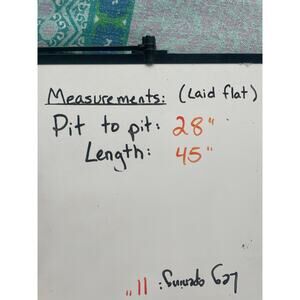 Measurements: (Laid flat)
Pit to pit: 28"
Length: 45"
Leg opening: 11"